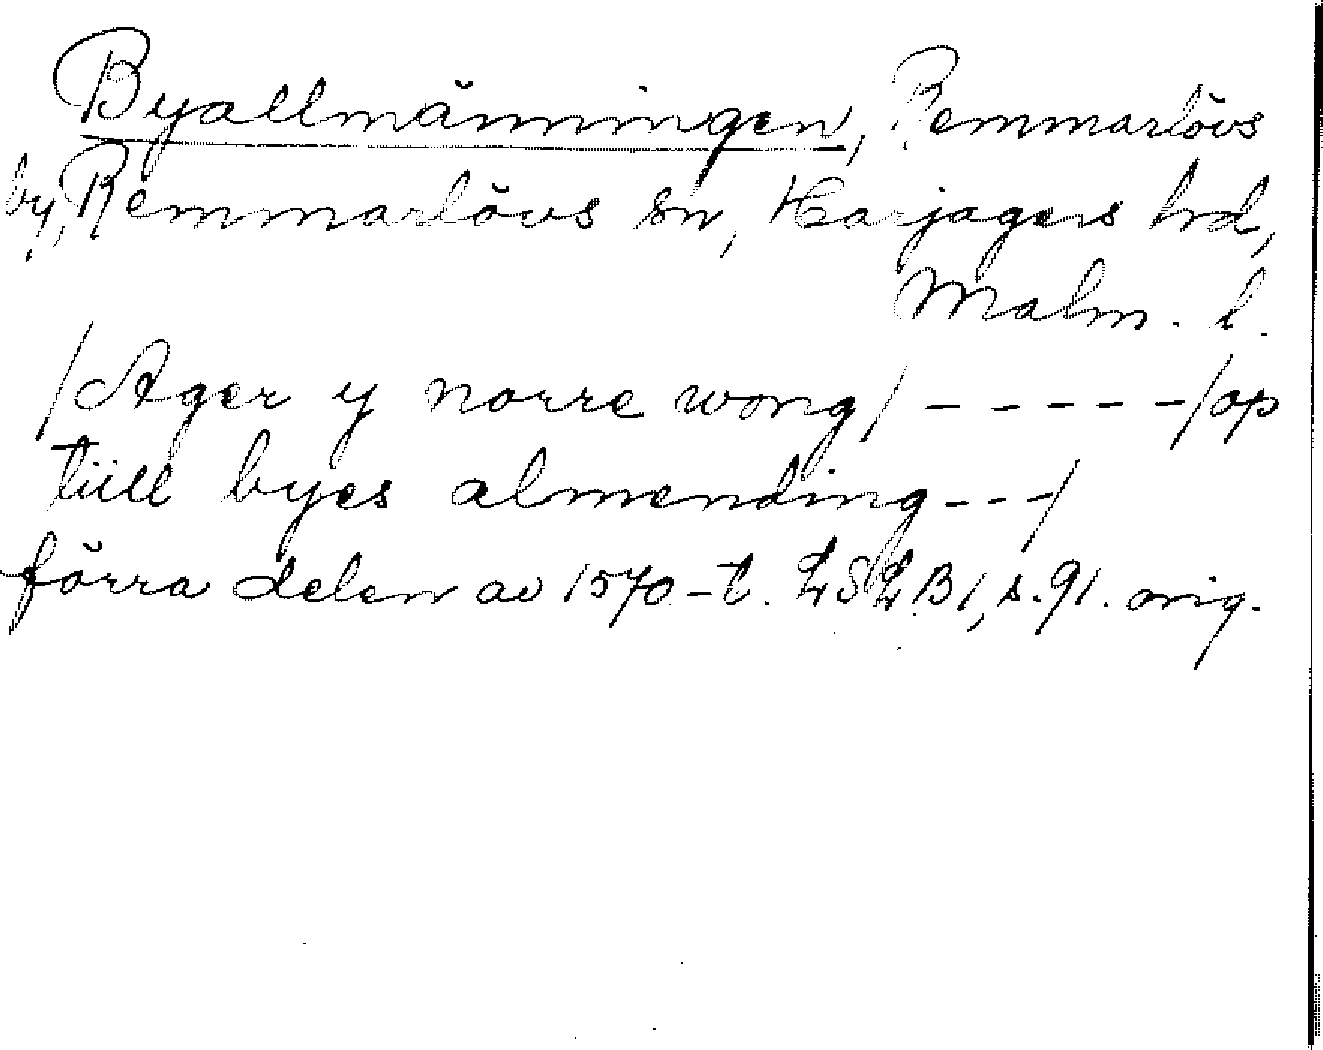 Byallmänningen, Remmarlövs
by, Remmarlövs sn, Harjagers hrd,
Malm. l.
/Ager y norre wong/ – – – – –/op
tiill byes almending – – –/
förra delen av 1570-t. LSLB1, s. 91. orig.